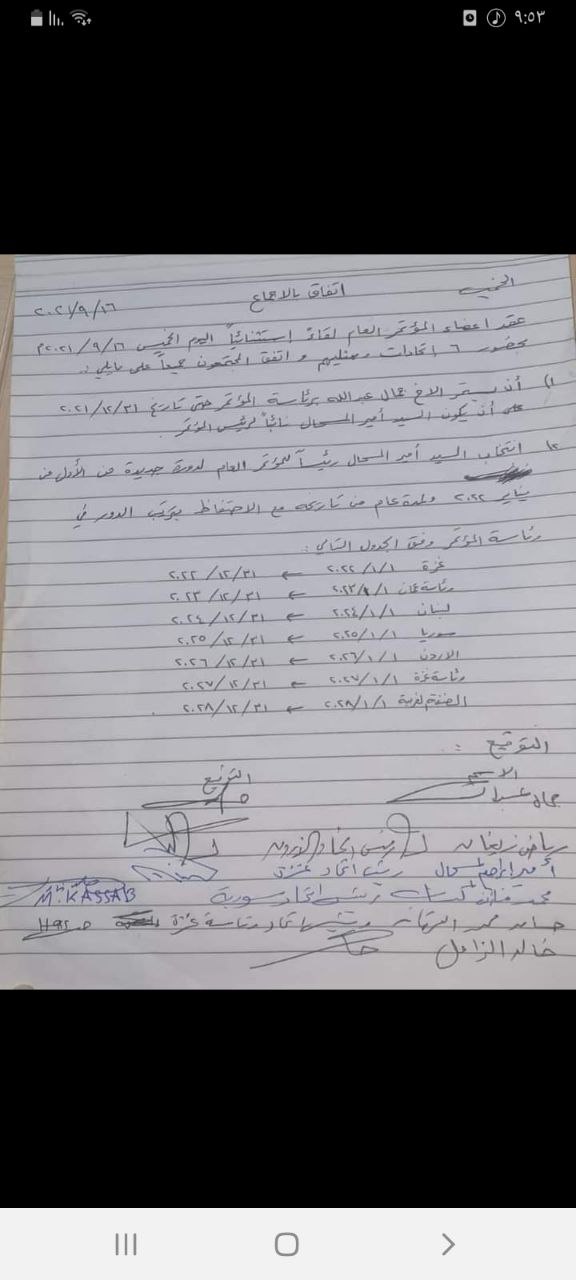 ٩:٥٣
الخميس اتفاق بالاجماع ٢٠٢١/٩/١٦
عقد اعضاء المؤتمر العام لقاءً إستثنائياً اليوم الخميس ٢٠٢١/٩/١٦م
بحضور ٦ اتحادات وممثليهم و اتفق المجتمعون جميعاً على مايلي :
١) أن يستمر الاخ جمال عبدالله برئاسة المؤتمر حتى تاريخ ٢٠٢١/١٢/٣١
على أن يكون السيد أمير السحال نائباً لرئيس المؤتمر
٢) انتخاب السيد أمير السحال رئيساً للمؤتمر العام لدورة جديدة من الأول من
يناير ٢٠٢٢ ولمدة عام من تاريخه مع الاحتفاظ بترتيب الدور في
رئاسة المؤتمر وفق الجدول التالي :
غزة ٢٠٢٢/١/١ ← ٢٠٢٢/١٢/٣١
رئاسة عمان ٢٠٢٣/١/١ ← ٢٠٢٣/١٢/٣١
لبنان ٢٠٢٤/١/١ ← ٢٠٢٤/١٢/٣١
سوريا ٢٠٢٥/١/١ ← ٢٠٢٥/١٢/٣١
الاردن ٢٠٢٦/١/١ ← ٢٠٢٦/١٢/٣١
رئاسة غزة ٢٠٢٧/١/١ ← ٢٠٢٧/١٢/٣١
الضفة الغربية ٢٠٢٨/١/١ ← ٢٠٢٨/١٢/٣١
التوقيع :
الاسم التوقيع
جمال عبدالله
رياض زيغان رئيس اتحاد
أمير ابراهيم السحال رئيس اتحاد غزة
محمد كساب رئيس اتحاد سورية M. KASSAB
محمد اتحاد رئاسة غزة
خالد الزامل